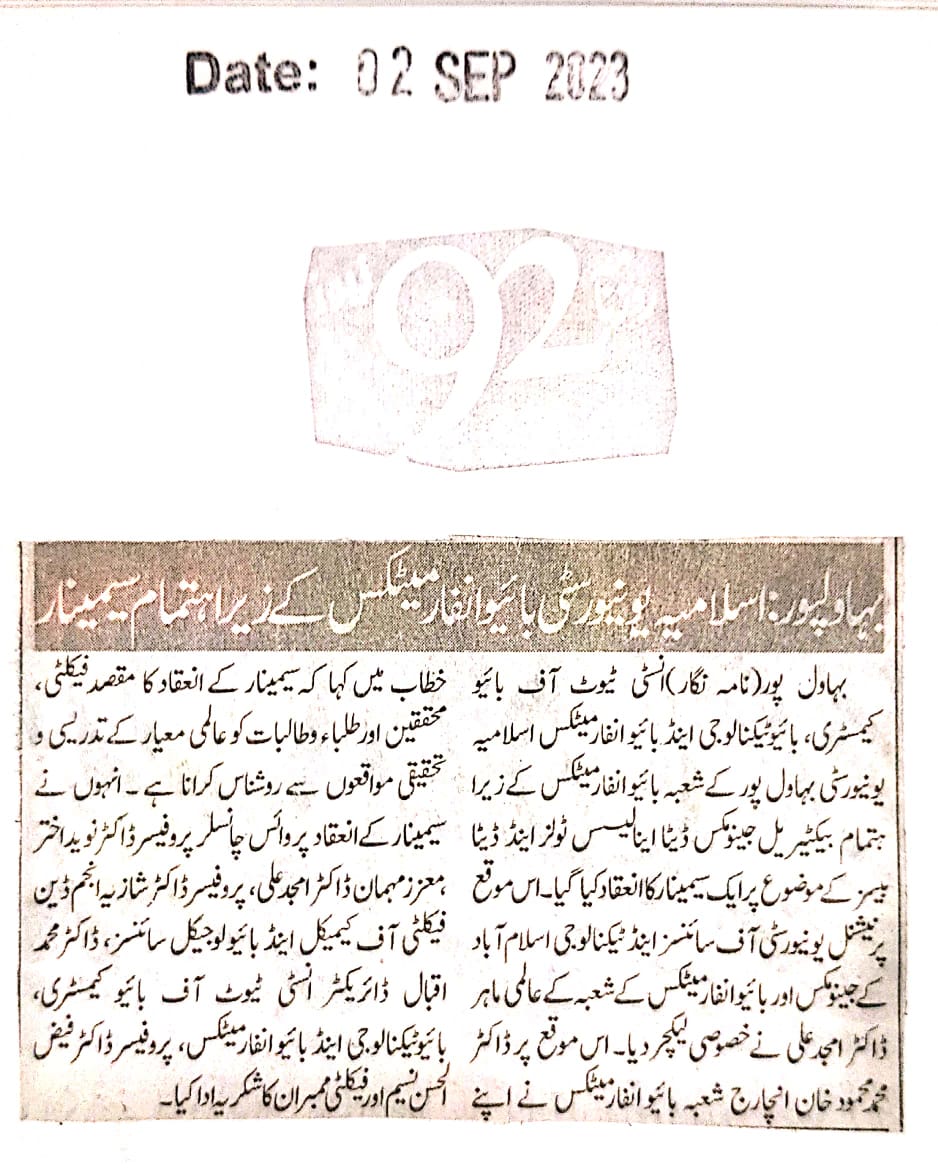 Date: 02 SEP 2023
92
بہاولپور: اسلامیہ یونیورسٹی بائیوانفارمیٹکس کے زیراہتمام سیمینار
بہاول پور(نامہ نگار)انسٹی ٹیوٹ آف بائیو
کیمسٹری، بائیوٹیکنالوجی اینڈ بائیوانفارمیٹکس اسلامیہ
یونیورسٹی بہاول پور کے شعبہ بائیوانفارمیٹکس کے زیرا
ہتمام بیکٹیریل جینومکس ڈیٹا اینالیسس ٹولز اینڈ ڈیٹا
بیسز کے موضوع پر ایک سیمینار کا انعقاد کیا گیا۔ اس موقع
پر نیشنل یونیورسٹی آف سائنسز اینڈ ٹیکنالوجی اسلام آباد
کے جینومکس اور بائیوانفارمیٹکس کے شعبہ کے عالمی ماہر
ڈاکٹر امجد علی نے خصوصی لیکچر دیا۔ اس موقع پر ڈاکٹر
محمد محمود خان انچارج شعبہ بائیوانفارمیٹکس نے اپنے
خطاب میں کہا کہ سیمینار کے انعقاد کا مقصد فیکلٹی،
محققین اور طلباء و طالبات کو عالمی معیار کے تدریسی و
تحقیقی مواقعوں سے روشناس کرانا ہے۔ انہوں نے
سیمینار کے انعقاد پر وائس چانسلر پروفیسر ڈاکٹر نوید اختر
،معزز مہمان ڈاکٹر امجد علی، پروفیسر ڈاکٹر شازیہ انجم ڈین
فیکلٹی آف کیمیکل اینڈ بائیولوجیکل سائنسز، ڈاکٹر محمد
اقبال ڈائریکٹر انسٹی ٹیوٹ آف بائیو کیمسٹری،
بائیوٹیکنالوجی اینڈ بائیوانفارمیٹکس، پروفیسر ڈاکٹر فیض
الحسن نسیم اور فیکلٹی ممبران کا شکریہ ادا کیا۔